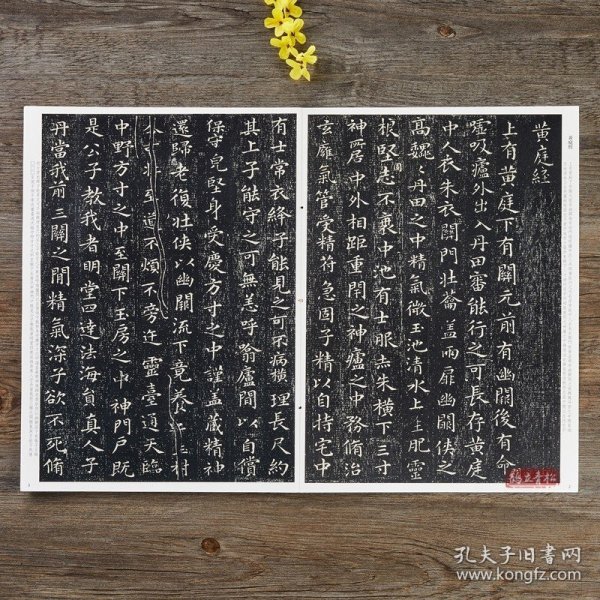 黃庭經
上有黃庭下有關元前有幽闕後有命
噓吸廬外出入丹田審能行之可長存黃庭
中人衣朱衣關門壯蘥蓋兩扉幽闕俠之
高魏〻丹田之中精氣微玉池清水上生肥靈
根堅志不衰中池有士服赤朱橫下三寸
神所居中外相距重閉之神廬之中務脩治
玄廱氣管受精符急固子精以自持宅中
有士常衣絳子能見之可不病橫理長尺約
其上子能守之可無恙呼翕廬間以自償
保守完堅身受慶方寸之中謹蓋藏精神
還歸老復壯俠以幽闕流下竟養子玉樹
不可扙至道不煩不旁迕靈臺通天臨
中野方寸之中至關下玉房之中神門戶既
是公子教我者明堂四達法海員真人子
丹當我前三關之間精氣深子欲不死脩
黃庭經
松青立鶴
孔夫子旧書网
www.kongfz.com